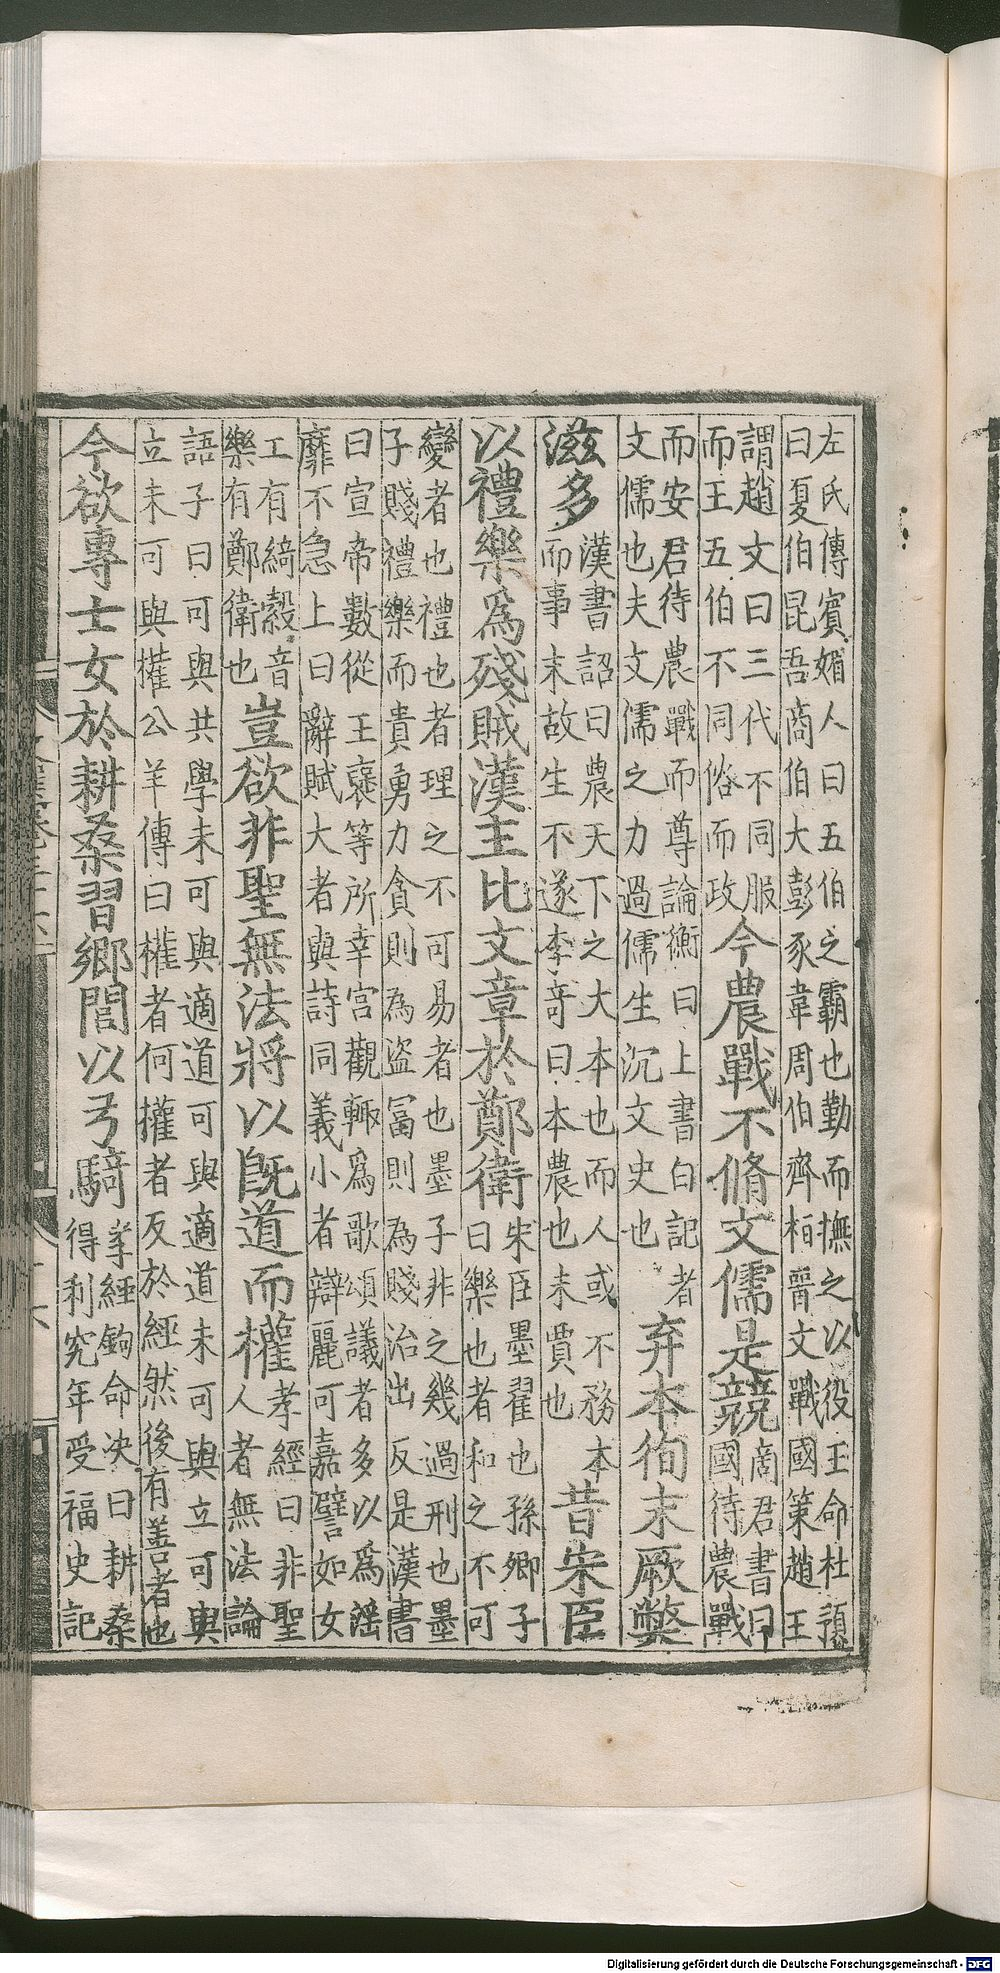 左氏傳賓媚人曰五伯之霸也勤而撫之以役王命杜預
曰夏伯昆吾商伯大彭豕韋周伯齊桓晉文戰國策趙王
謂趙文曰三代不同服
而王五伯不同俗而政
今農戰不脩文儒是競
商君書曰
國待農戰
而安君待農戰而尊論衡曰上書白記者
文儒也夫文儒之力過儒生沉文史也
弃本徇末厥弊
滋多
漢書詔曰農天下之大本也而人或不務本
而事末故生不遂李奇曰本農也末賈也
昔宋臣
以禮樂爲殘賊漢主比文章於鄭衛
宋臣墨翟也孫卿子
曰樂也者和之不可
變者也禮也者理之不可易者也墨子非之幾過刑也墨
子賤禮樂而貴勇力貪則為盜冨則為賤治出反是漢書
曰宣帝數從王襃等所幸宮觀輙爲歌頌議者多以爲滛
靡不急上曰辭賦大者與詩同義小者辯麗可嘉譬如女
工有綺縠音
樂有鄭衛也
豈欲非聖無法將以旣道而權
孝經曰非聖
人者無法論
語子曰可與共學未可與適道可與適道未可與立可與
立未可與權公羊傳曰權者何權者反於經然後有善者也
今欲專士女於耕桑習鄉閭以弓騎
孝經鉤命决曰耕桑
得利究年受福史記
Digitalisierung gefördert durch die Deutsche Forschungsgemeinschaft - DFG